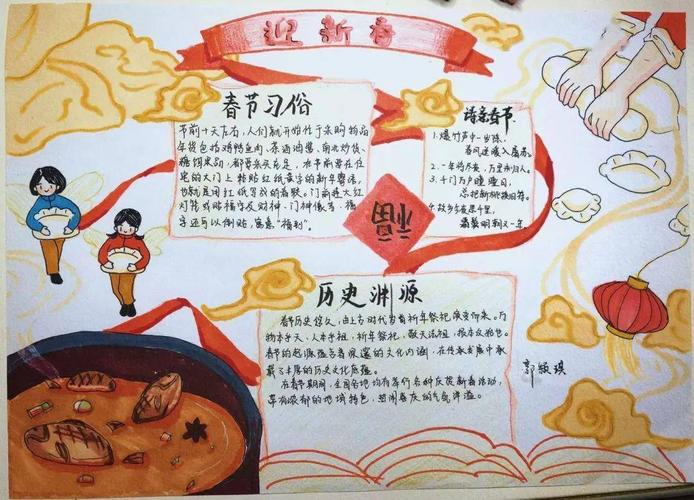 迎新春
春节习俗
节前十天左右，人们就开始忙于采购物品
年货包括鸡鸭鱼肉、茶酒油酱、南北炒货、
糖饵果品，都要采买充足，在节前常在住
宅的大门上粘贴红纸黄字的新年寄语，
也就是用红纸写成的春联。门前挂大红
灯笼或贴福字及财神、门神像等，福
字还可以倒贴，寓意“福到”。
诗意春节
1.爆竹声中一岁除，
春风送暖入屠苏。
2.一年将尽夜，万里未归人。
3.千门万户曈曈日，
总把新桃换旧符。
4.故乡今夜思千里，
霜鬓明朝又一年。
福
历史渊源
春节历史悠久，由上古时代岁首祈年祭祀演变而来。万
物本乎天，人本乎祖，祈年祭祀，敬天法祖，报本反始也。
春节的起源蕴含着深邃的文化内涵，在传承发展中承
载了丰厚的历史文化底蕴。
在春节期间，全国各地均有举行各种庆贺新春活动，
带有浓郁的地域特色，热闹喜庆的气氛洋溢。